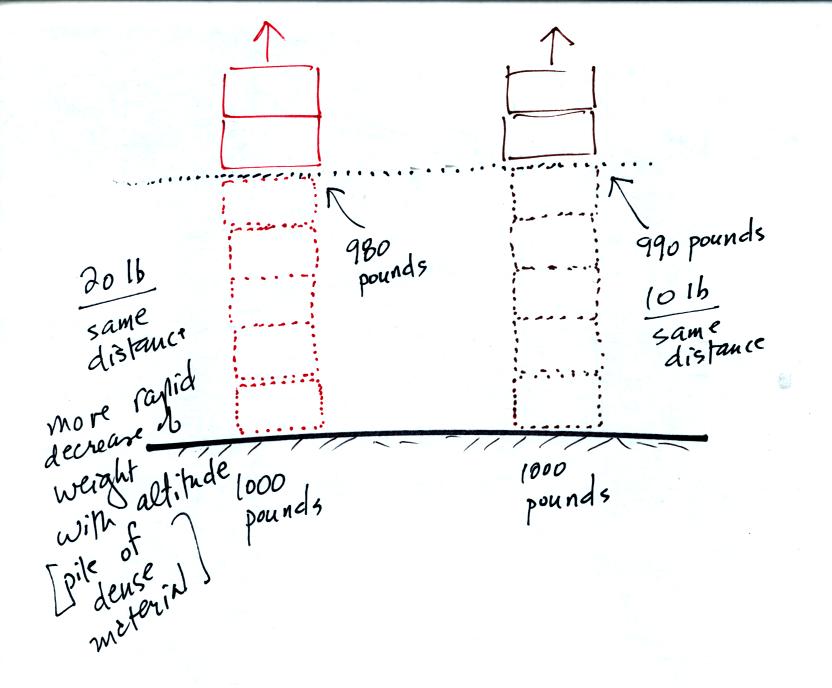 980
pounds
990 pounds
20 lb
same
distance
10 lb
same
distance
more rapid
decrease of
weight
with altitude
[pile of
dense
material]
1000
pounds
1000
pounds